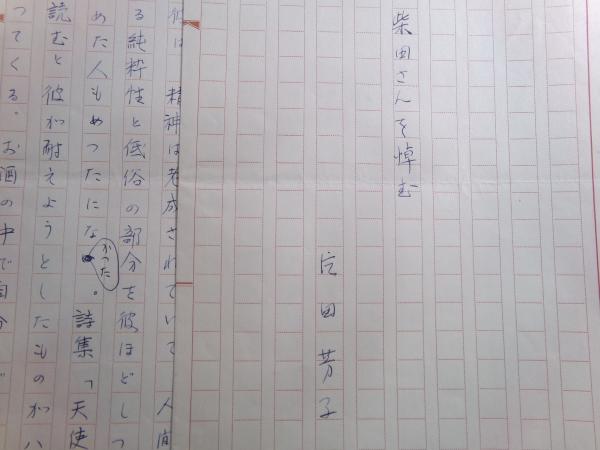 柴田さんを悼む
片田芳子
彼は　精神は老成されていて　人間
る純粋性と低俗の部分を彼ほどしつ
めた人もめつたになかつた。詩集「天使
読むと彼が耐えようとしたものがハ
つてくる。お酒の中で自分